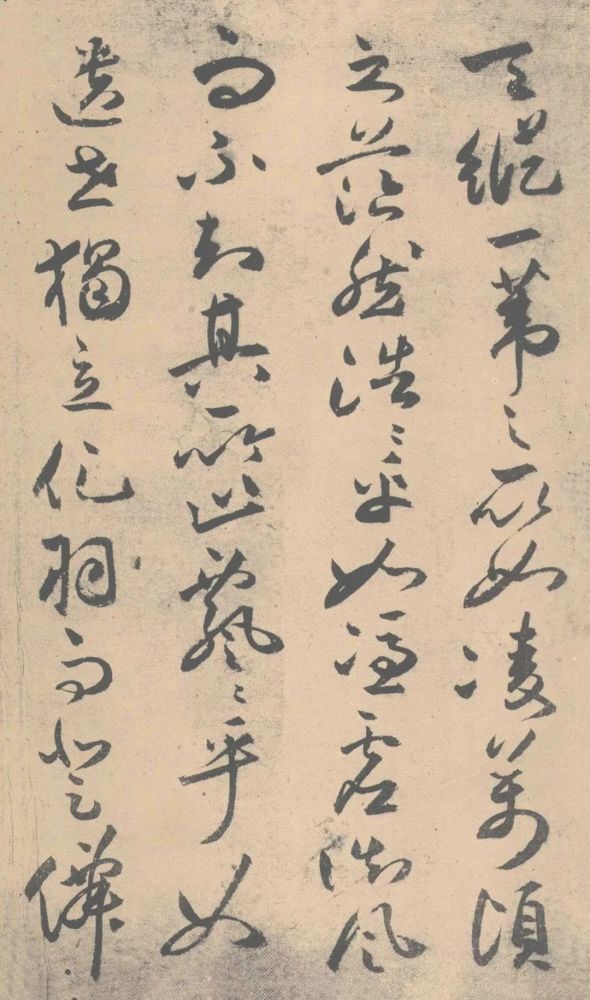 天縱一葦之所如凌萬頃
之茫然浩々乎如馮虛御風
而不知其所止飄々乎如
遺世獨立化羽而登僊